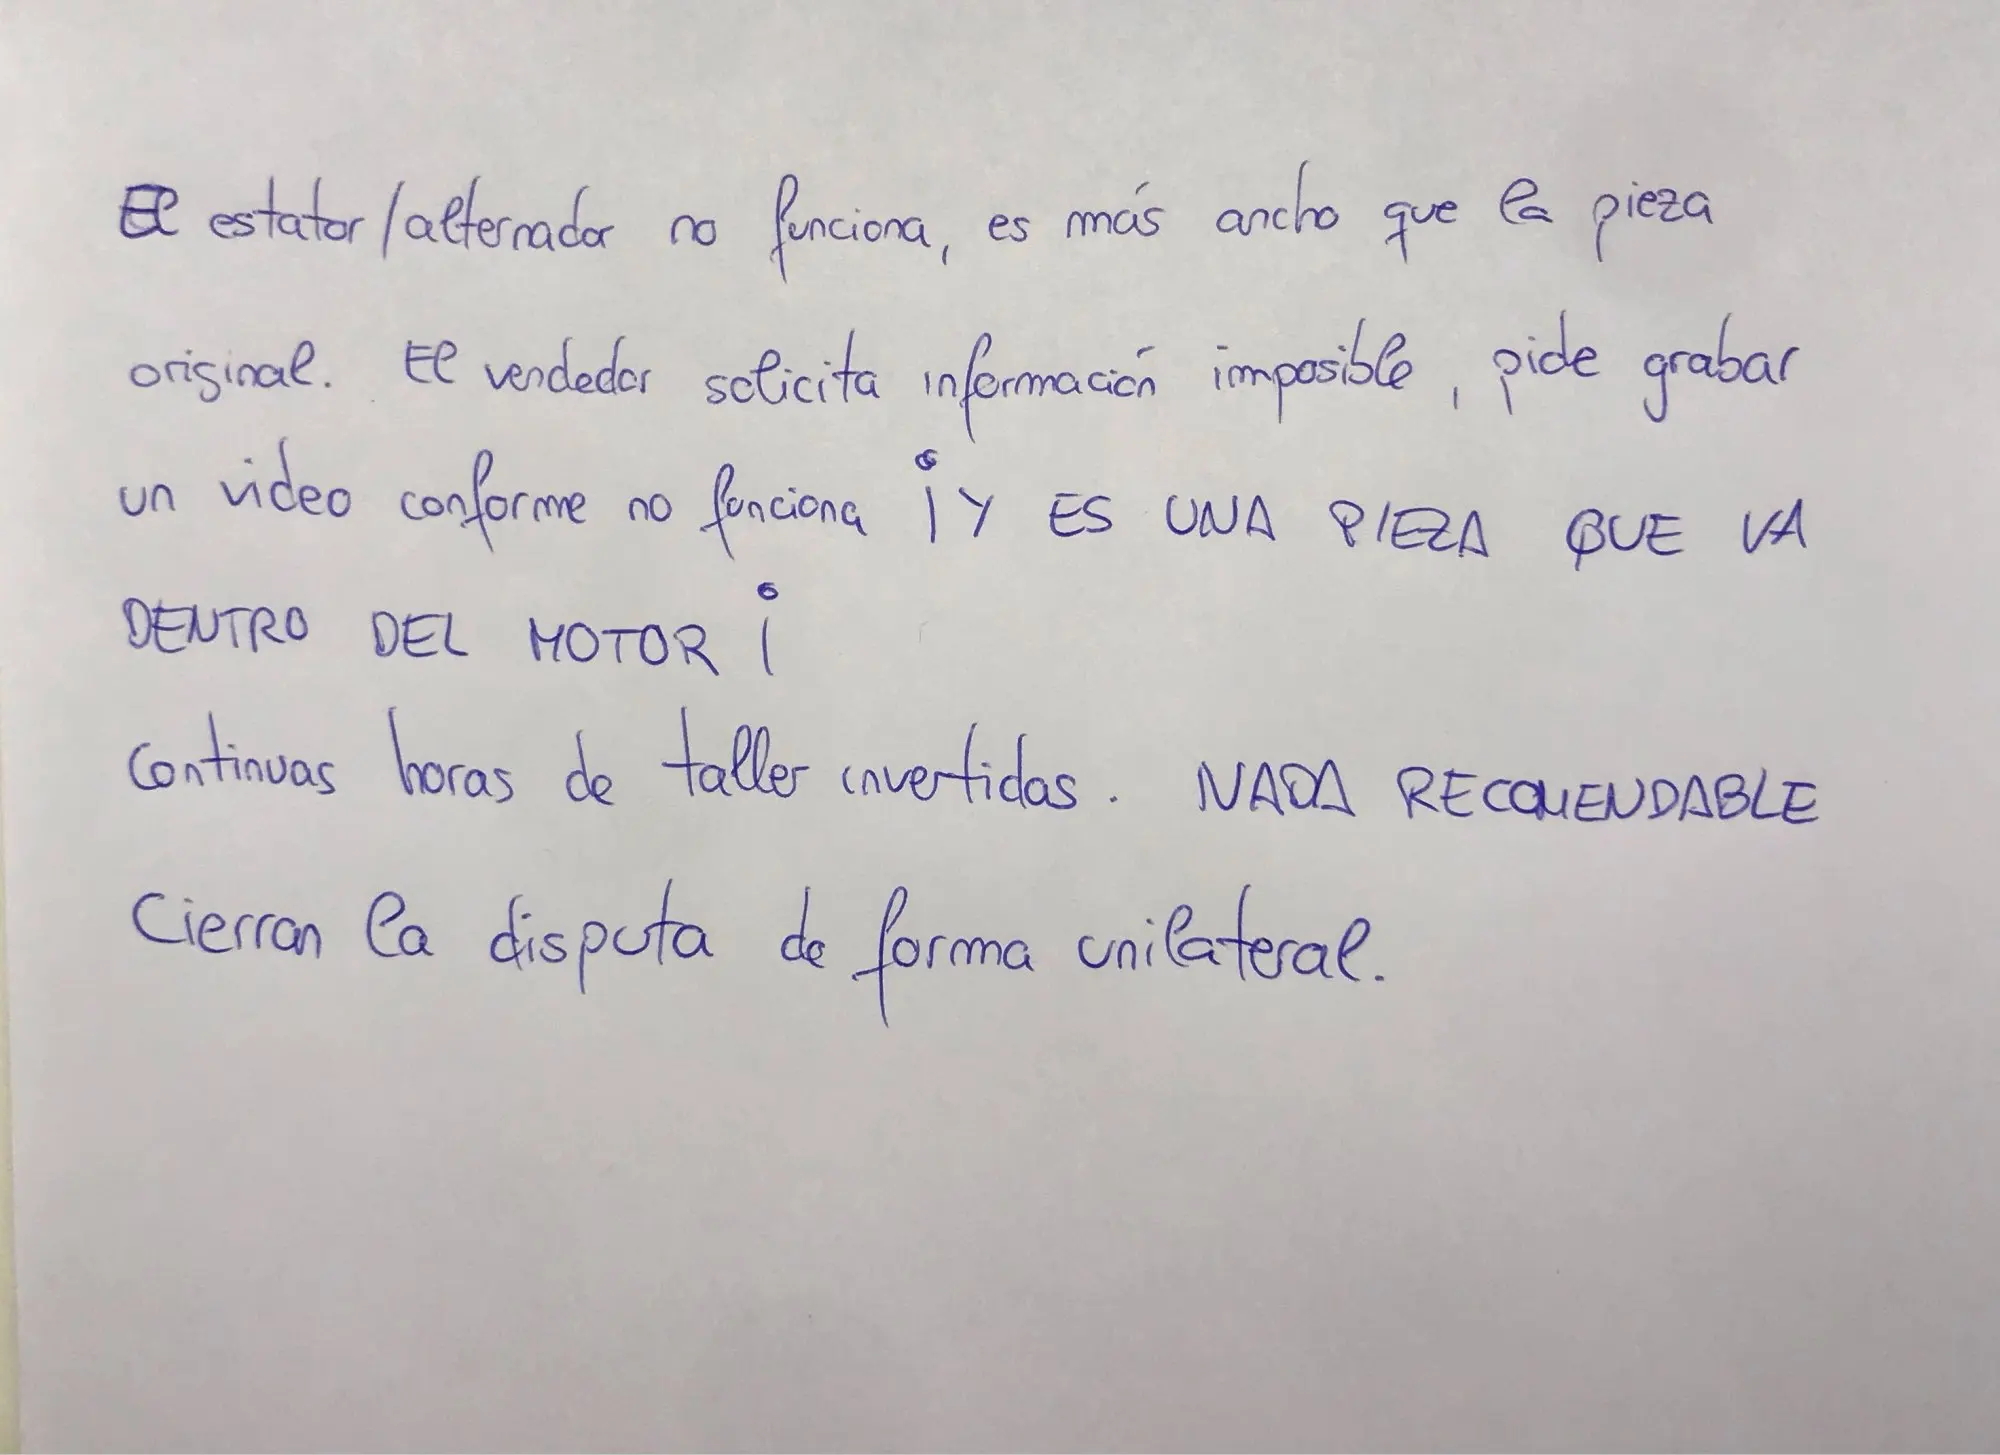 El estator/alternador no funciona, es más ancho que la pieza
original. El vendedor solicita información imposible, pide grabar
un video conforme no funciona ¡Y ES UNA PIEZA QUE VA
DENTRO DEL MOTOR¡
Continuas horas de taller invertidas. NADA RECOMENDABLE
Cierran la disputa de forma unilateral.